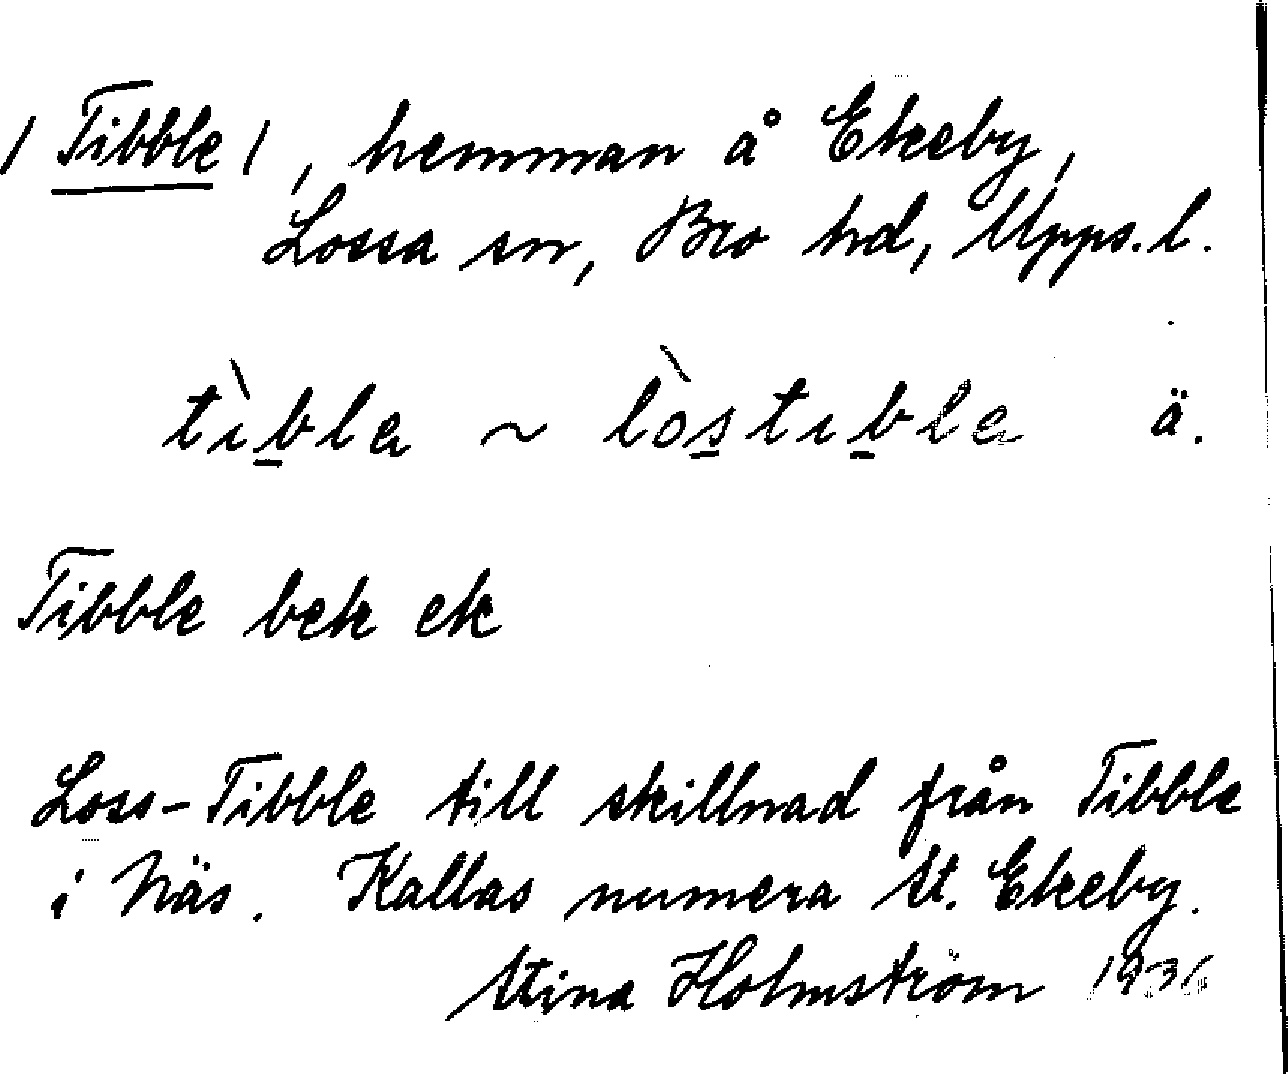 /Tibble/, hemman å Ekeby,
Lossa sn, Bro hd, Upps. l.
tìbla ~ lòstibla ä.
Tibble bek ek
Loss-Tibble till skillnad från Tibble
i Näs. Kallas numera St. Ekeby.
Stina Holmström 1936